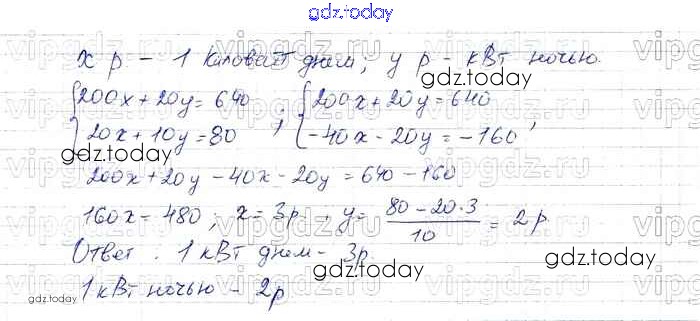 gdz.today
x р – 1 киловатт днем; y р – кВт ночью.
gdz.today
{200x + 20y = 640 ; {200x + 20y = 640
{20x + 10y = 80 {-40x - 20y = -160 ,
gdz.today
gdz.today
200x + 20y - 40x - 20y = 640 - 160
160x = 480 ; x = 3р ; y = (80 - 20·3)/10 = 2р
Ответ. 1 кВт днем – 3р.
gdz.today
gdz.today
1 кВт ночью – 2р
vipgdz.ru